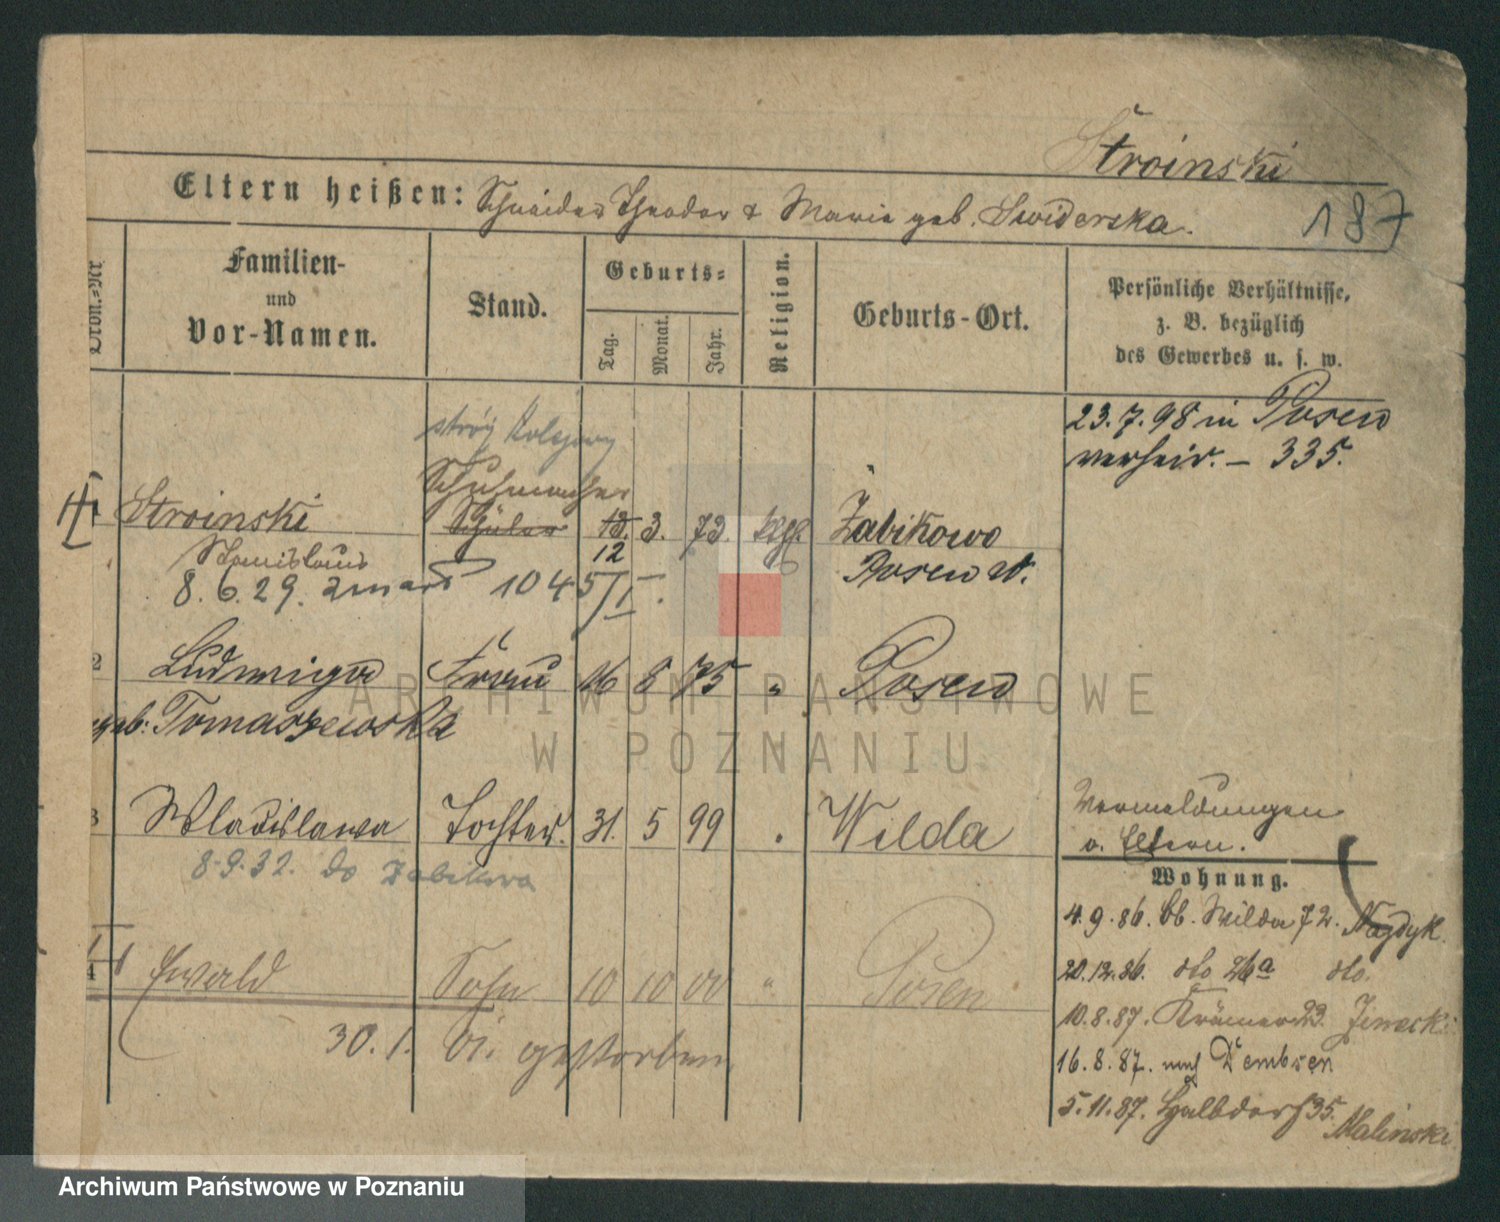 Stroinski
Eltern heißen: Schneider Theodor & Marie geb. Swiderska.
187
Familien- und Vor-Namen.
Stand.
Geburts-
Tag.
Monat.
Jahr.
Religion.
Geburts-Ort.
Persönliche Verhältnisse,
z. B. bezüglich
des Gewerbes u. s. w.
23.7.98 in Posen
verheir. – 335.
stróż
Schuhmacher
Stroinski Schüler 13. 3. 73. kath Żabikowo
Stanislaus 12 Posen W.
8. 6. 29. zmarł 1045/I.
2 Ludwiga Frau 16 8 75 " Posen
geb: Tomaszewska
3 Wladislawa Tochter. 31. 5 99 " Wilda
8.9.32. do Żabikowa
Vermeldungen
v. Eltern.
Wohnung.
4.9.86. bb. Wilda 72. Najdyk.
20.12.86. dto 26a dto.
4 Ewald Sohn 10 10 00 " Posen
10.8.87. Krämerstr 23.
30.1. 01. gestorben
16.8.87. nach Dembsen
5.11.87. Halbdorf 35. Malinski
ARCHIWUM PAŃSTWOWE
W POZNANIU
Archiwum Państwowe w Poznaniu